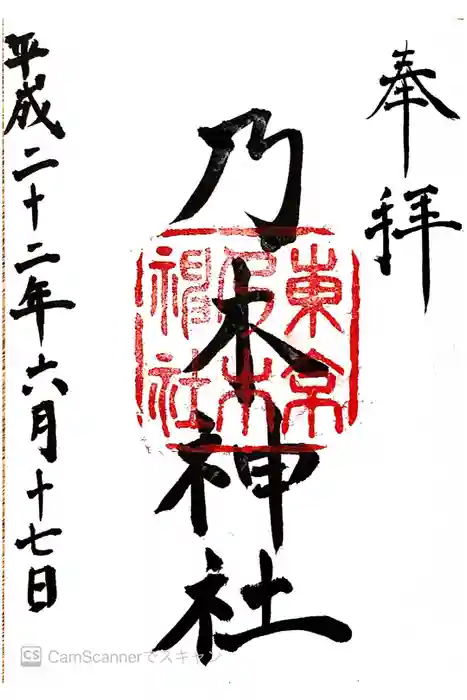 奉拝
乃木神社
東京
乃木
神社
平成二十二年六月十七日
CS CamScannerでスキャン